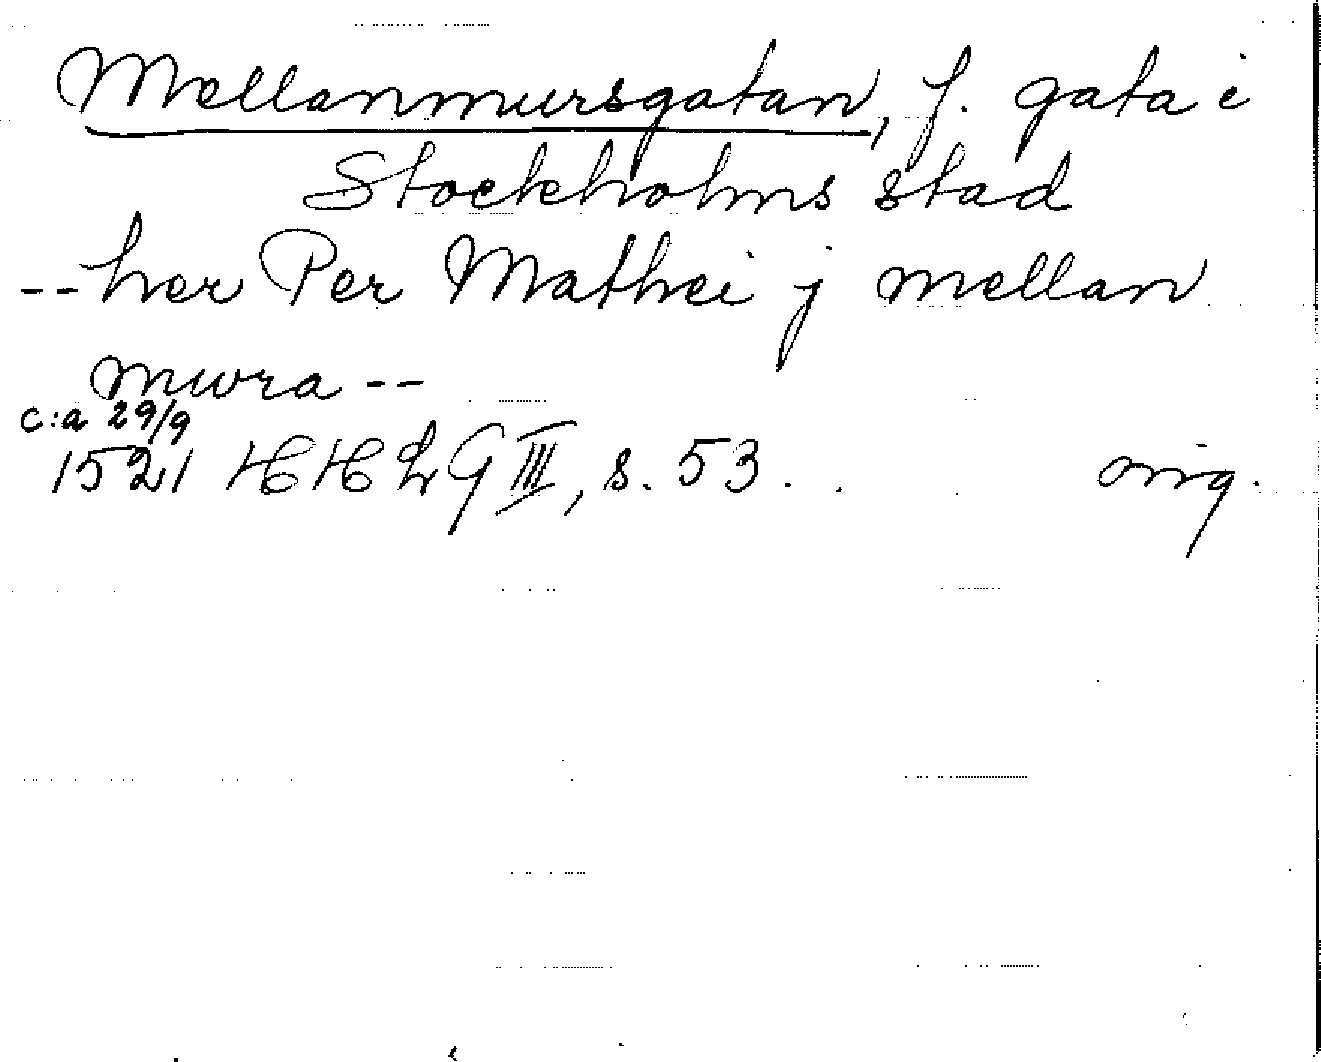 Mellanmursgatan, f. gata i
Stockholms stad
-- her Per Mathei j mellan
mwra --
c:a 29/9
1521 HHLG III, s. 53. orig.